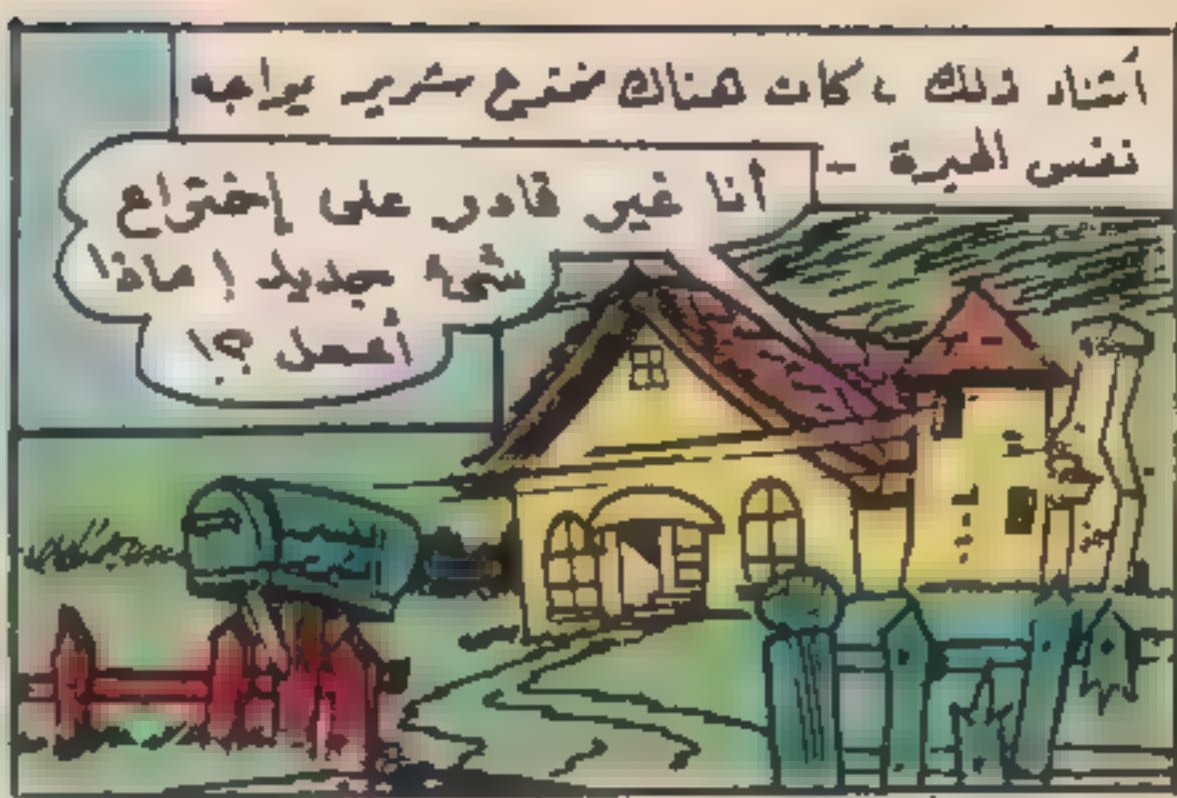 أثناء ذلك ، كان هناك مخترع شرير يواجه
نفس الحيرة -
أنا غير قادر على إختراع
شيء جديد ! ماذا
أفعل ؟!